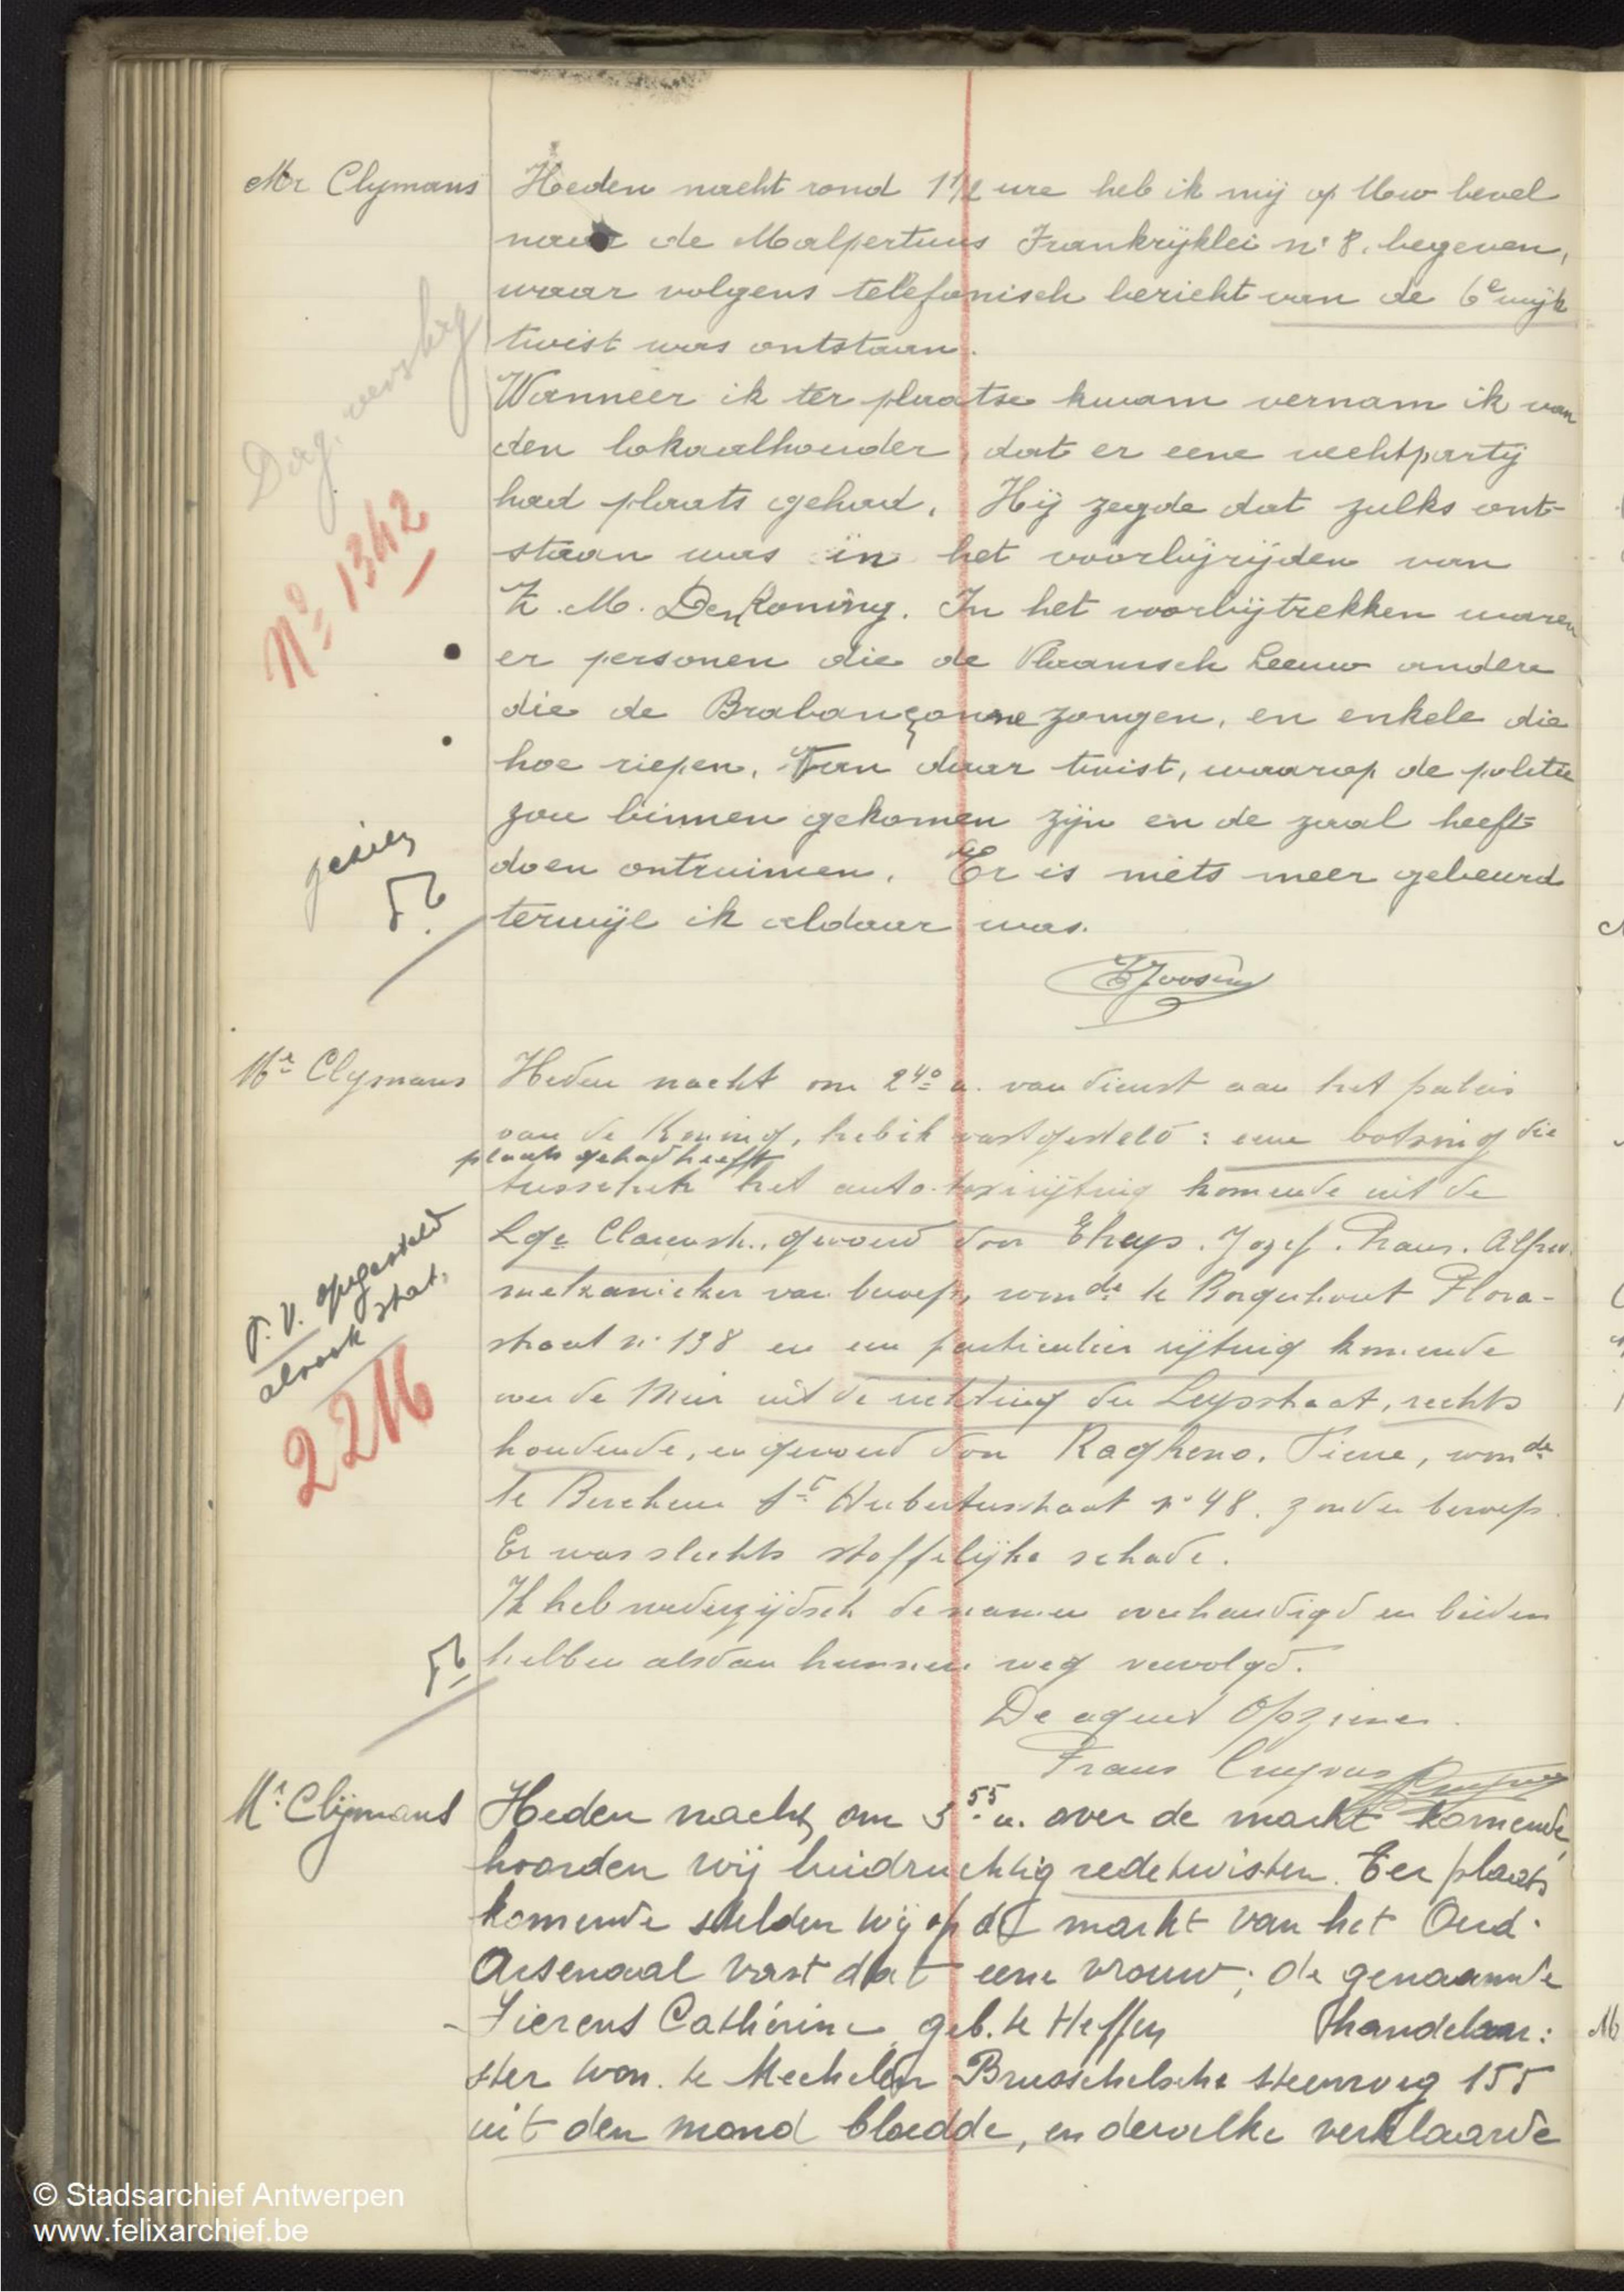 Mr Clymans
Heden nacht rond 1 1/2 ure heb ik mij op Uw bevel
naar de Malpertuus Frankrijklei n° 8. begeven,
waar volgens telefonisch bericht van de 6e wijk
twist was ontstaan.
Wanneer ik ter plaatse kwam vernam ik van
den lokaalhouder dat er eene vechtpartij
had plaats gehad. Hij zegde dat zulks ont-
staan was in het voorbijrijden van
Z. M. Den Koning. In het voorbijtrekken waren
er personen die de Vlaamsch Leeuw andere
die de Brabançonne zongen, en enkele die
hoe riepen. Van daar twist, waarop de politie
zou binnen gekomen zijn en de zaal heeft
doen ontruimen. Er is niets meer gebeurd
terwijl ik aldaar was.
Joosens
Dag. verslag
N° 1342
gezien
Mr Clymans
Heden nacht om 2 40 u. van dienst aan het paleis
van de Koning, heb ik vastgesteld : eene botsing die
plaats gehad heeft
tusschen het auto-taxirijtuig komende uit de
Lge Clarenstr., gevoerd door Jozef. Frans. Alfr.
mekanieker van beroep, wonde te Borgerhout Flora-
straat n° 138 en een particulier rijtuig komende
over de Meir uit de richting der Leysstraat, rechts
houdende, en gevoerd door Ragheno. Pierre, wonde
te Berchem St Hubertusstraat n° 48. zonder beroep.
Er was slechts stoffelijke schade.
Ik heb wederzijdsch de namen overhandigd en beiden
hebben alsdan hunnen weg vervolgd.
De agent Opziener.
Frans
P. V. opgesteld
alsook stat.
2216
Mr Clijmans
Heden nacht, om 3 55 u. over de markt komende,
hoorden wij luidruchtig redetwisten. Ter plaats
komende stelden wij op de markt van het Oud-
Arsenaal vast dat eene vrouw; de genaamde
Fierens Cathérine geb. te Heffen handelaar:
ster won. te Mechelen Brusschelsche steenweg 155
uit den mond bloedde, en dewelke verklaarde
© Stadsarchief Antwerpen
www.felixarchief.be